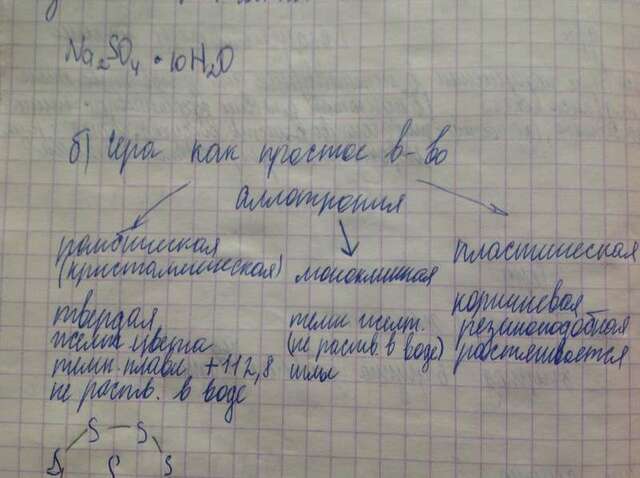 Na₂SO₄ · 10H₂O
б) Сера как простое в-во
аллотропия
ромбическая
(кристаллическая)
твердая
желт. цвета
темп. плавл. +112,8
не раств. в воде
моноклинная
темн. желт.
(не раств. в воде)
иглы
пластическая
коричневая
резиноподобная
растягивается
S - S
S S S